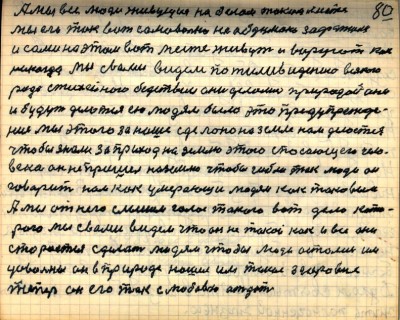 80
А мы все люди живущия на белом таком месте
мы его так вот самовольно не обдумали захватили
и сами на этом вот месте живут и
никогда мы с вами видем по телевидению всякого
рода стихейного бедствия они делались природой они
и будут делатся ею людям было это предупрежде-
ние мы этого за наше сделоно на земле нам делается
чтобы знали за приход на землю этого спосающего чело-
века он не пришел на землю чтобы гибли так люди он
говорит нам как умерающи людям как таковым
А мы от него слышим голос такого вот дела кото-
рого мы с вами видем что он не такой как и все они
старается сделать людям чтобы люди остались им
довольны он в природе нашел им такое здоровья
теперь он его так с любовью отдает